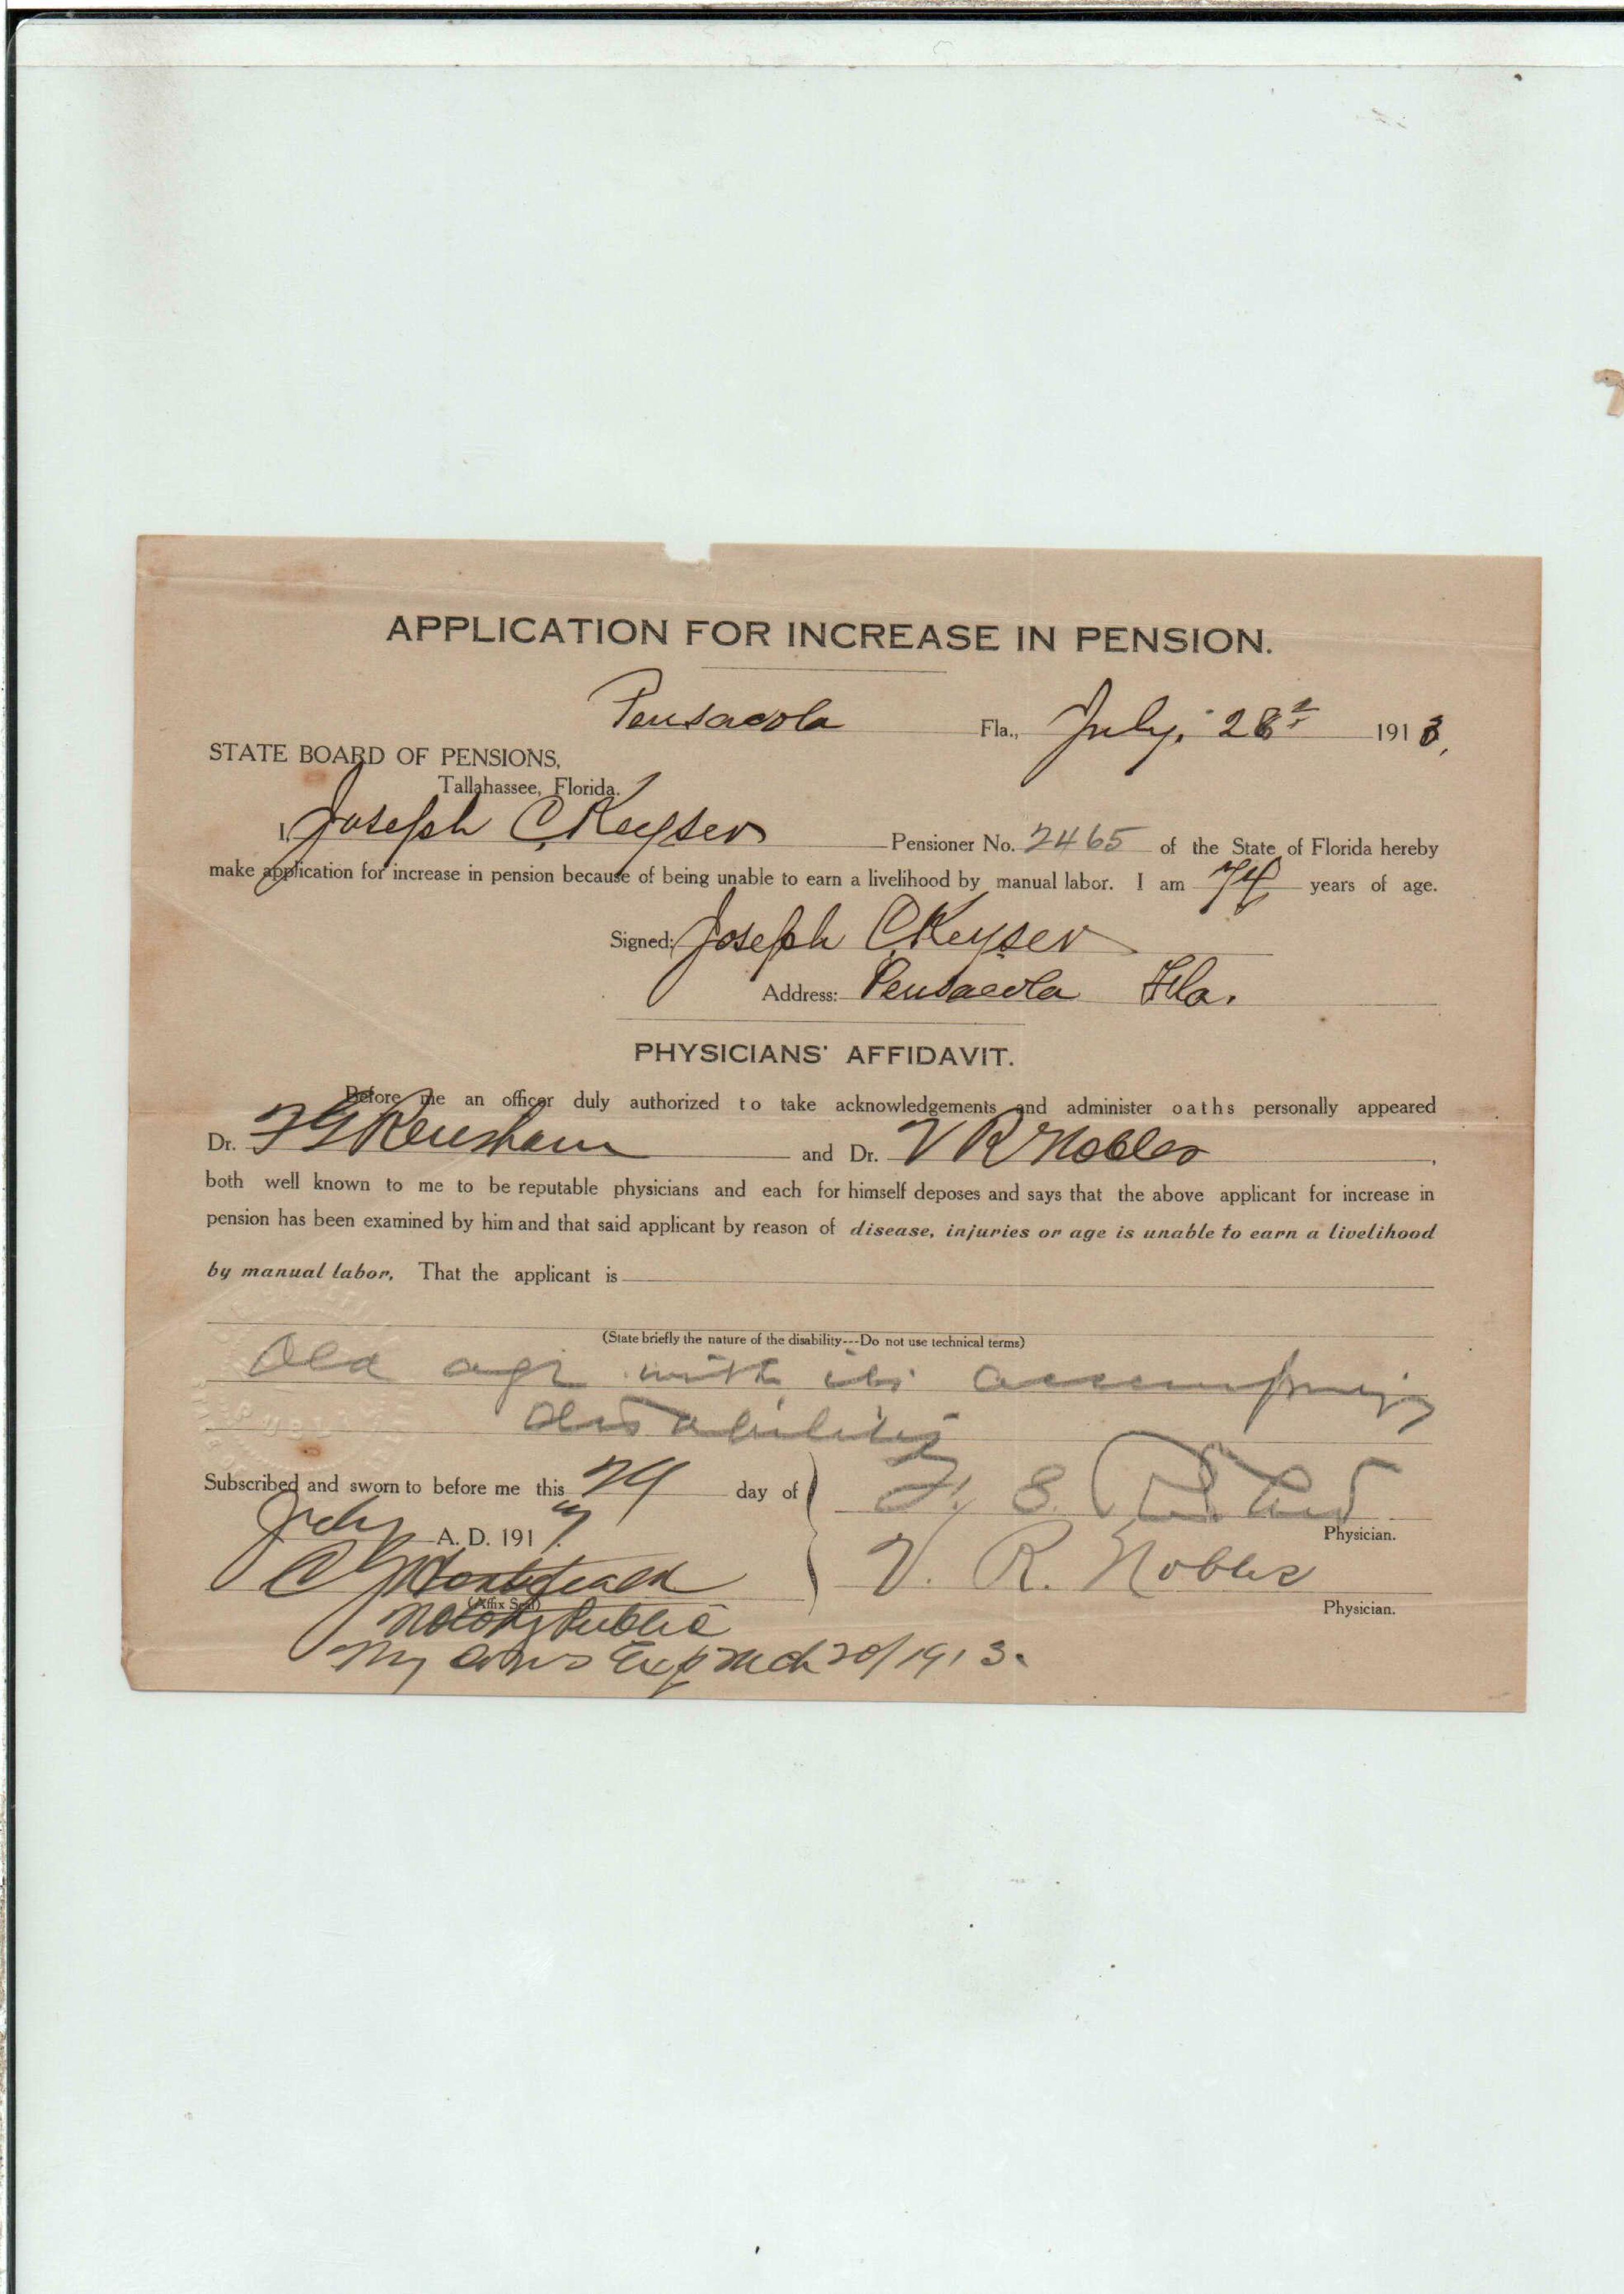 APPLICATION FOR INCREASE IN PENSION.
Pensacola Fla., July, 28th 1913,
STATE BOARD OF PENSIONS,
Tallahassee, Florida.
I, Joseph C. Keyser Pensioner No. 2465 of the State of Florida hereby
make application for increase in pension because of being unable to earn a livelihood by manual labor. I am 74 years of age.
Signed: Joseph C. Keyser
Address: Pensacola Fla.
PHYSICIANS' AFFIDAVIT.
Before me an officer duly authorized to take acknowledgements and administer oaths personally appeared
Dr. F G Renshaw and Dr. V R Nobles,
both well known to me to be reputable physicians and each for himself deposes and says that the above applicant for increase in
pension has been examined by him and that said applicant by reason of disease, injuries or age is unable to earn a livelihood
by manual labor. That the applicant is
(State briefly the nature of the disability---Do not use technical terms)
Old age with its accompanying
disabilities
Subscribed and sworn to before me this 29 day of
July A. D. 191
Physician.
V. R. Nobles
Physician.
(Affix Seal)
Notary Public
My Exp Mch 20/1913.